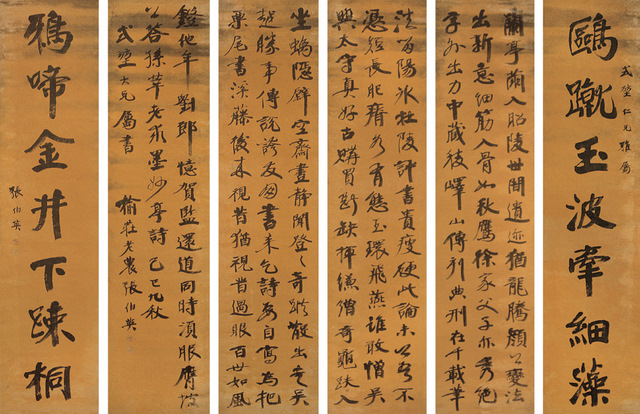 鷗蹴玉波牽細藻
仁兄雅屬
蘭亭繭入昭陵世間遺迹猶龍騰顏公變法
出新意細筋入骨如秋鷹徐家父子亦秀絕
字外出力中藏稜嶧山傳刻典刑在千載筆
法留陽冰杜陵評書貴瘦硬此論未公吾不
憑短長肥瘠各有態玉環飛燕誰敢憎吳
興太守真好古購買斷缺揮縑繒奇龜趺入
坐螭隱壁空齋晝靜聞登々奇蹤散出走吳
越勝事傳說誇友朋書來乞詩要自寫為把
栗尾書溪藤後來視昔猶視昔過眼百世如風
鐙他年劉郎憶賀監還道同時須服膺坡
公答孫莘老求墨妙亭詩己巳九秋
大兄屬書
榆莊老農張伯英
鴉啼金井下疎桐
張伯英